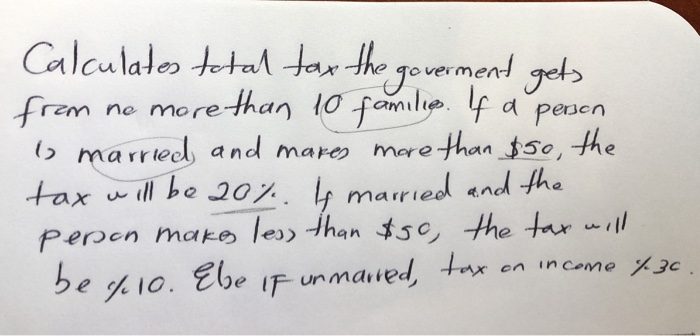 Calculates total tax the goverment gets
from no more than 10 families. If a person
is married, and makes more than $50, the
tax will be 20%. If married and the
person makes less than $50, the tax will
be %10. Else IF unmarred, tax on income %30.